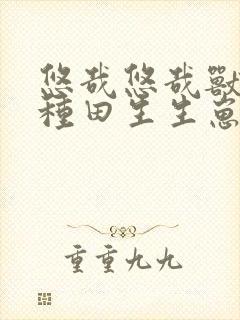 悠哉悠哉獸
種田生生崽
重重九九